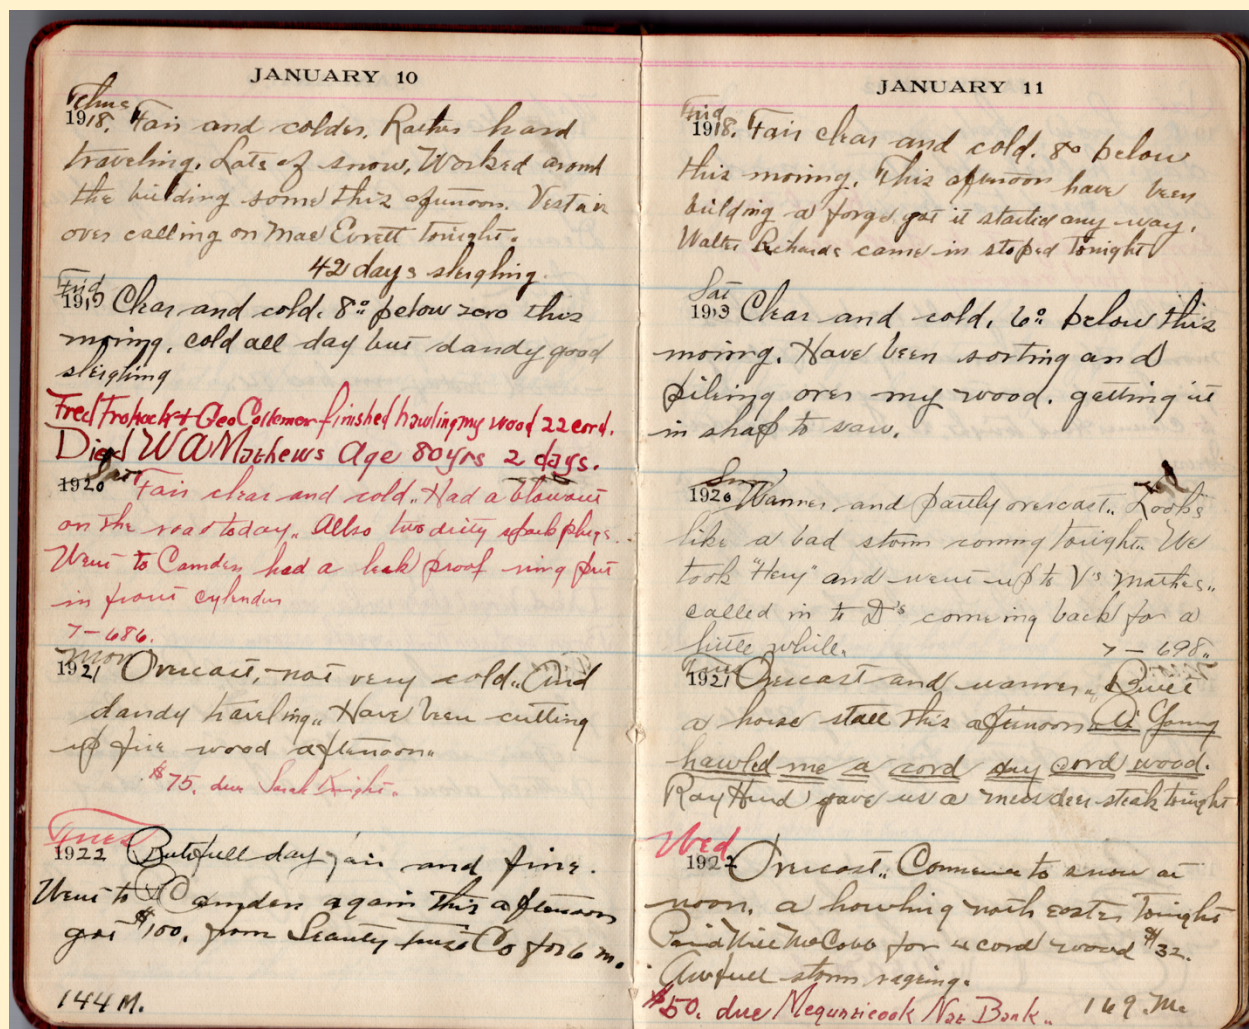 JANUARY 10
Thurs
1918. Fair and colder. Rather hard
traveling. Lots of snow. Worked around
the building some this afternoon. Vesta is
over calling on Mae Evrett tonight.
42 days sleighing.
Frid
1919 Clear and cold. 8° below zero this
morning. cold all day but dandy good
sleighing
Fred Frohock + Geo Colleman finished hawling my wood 22 cord.
Died W A Mathews Age 80 yrs 2 days.
Sat
1920 Fair clear and cold.. Had a blowout
on the road today.. Allso two dirty spark plugs..
Went to Camden had a leak proof ring put
in front cylender
7-686.
Mon
1921 Overcast, not very cold.. And
dandy traveling.. Have been cutting
up fire wood afternoon..
$75. due Sarah Knight..
Tues
1922 Butefull day fair and fine.
Went to Camden again this afternoon
got $100. from Co for 6 m.
144 M.
JANUARY 11
Frid
1918. Fair clear and cold. 8° below
this morning. This afternoon have been
bilding a forge got it started any way.
Walter Richards came in stoped tonight
Sat
1919 Clear and cold. 6° below this
morning. Have been sorting and
pileing over my wood. getting it
in shap to saw.
Sun
1920 Warmer and partly overcast.. Looks
like a bad storm coming tonight.. We
took "Heny" and went up to V's Mothers..
called in to D's comeing back for a
little while.
7-698..
Tues
1921 Overcast and warmer.. Built
a horse stall this afternoon. Al Young
hawled me a cord dry cord wood.
Ray Hurd gave us a mess deer steak tonight
Wed
1922 Overcast.. Commence to snow at
noon. a howling north easter tonight
Paid Will McCobb for 4 cord wood $32.
Awfull storm rageing.
$50. due Megunticook Nat Bank..
169 M.